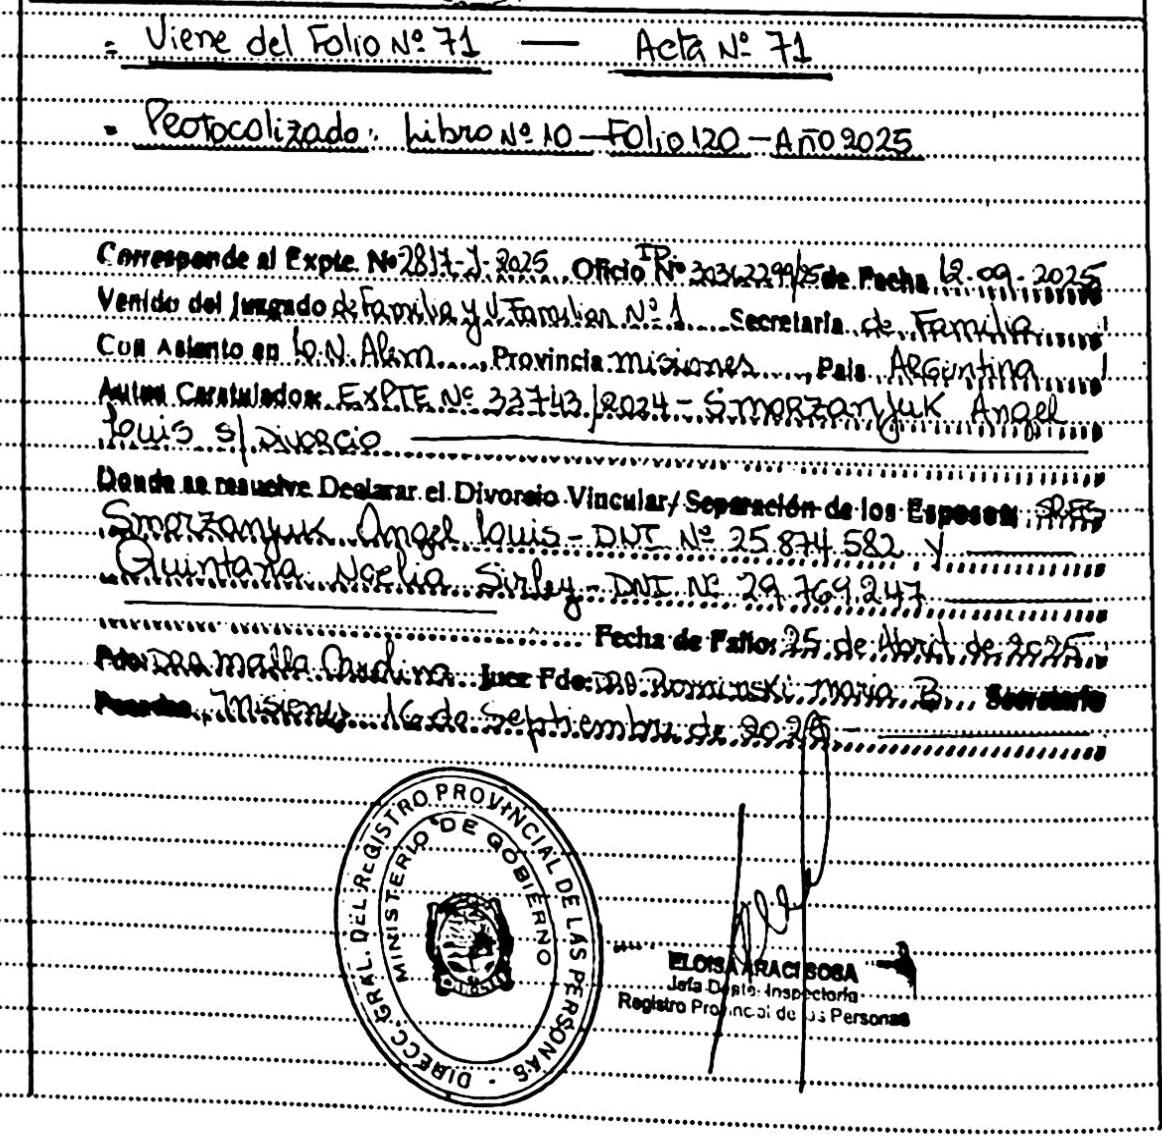 = Viene del Folio Nº 71 — Acta Nº 71
= Protocolizado: Libro Nº 10 - Folio 120 - Año 2025
Corresponde al Expte. Nº 2817-J-2025 Oficio ID Nº 30362299/25 de Fecha 12.09.2025
Venido del Juzgado de Familia y V. Familiar Nº 1 Secretaría de Familia
Con Asiento en L.N. Alem, Provincia Misiones, País Argentina
Autos Caratulados: EXPTE Nº 33743/2024 - Smorzanjuk Angel
Louis s/ Divorcio
Donde se resuelve Declarar el Divorcio Vincular/Separación de los Esposos: SRES
Smorzanyuk Angel Louis - DNI Nº 25.874.582 y
Quintana Noelia Sirley - DNI Nº 29.769.247
Fecha de Fallo: 25 de Abril de 2025
Fdo: DRA Malla Carolina Juez Fdo: DRA Rominski Maria B. Secretaria
Posadas, Misiones 16 de Septiembre de 2025 -
DIRECC. GRAL. DEL REGISTRO PROVINCIAL DE LAS PERSONAS -
MINISTERIO DE GOBIERNO
ELOISA ARACI SOSA
Jefa Dpto. Inspectoría
Registro Provincial de las Personas